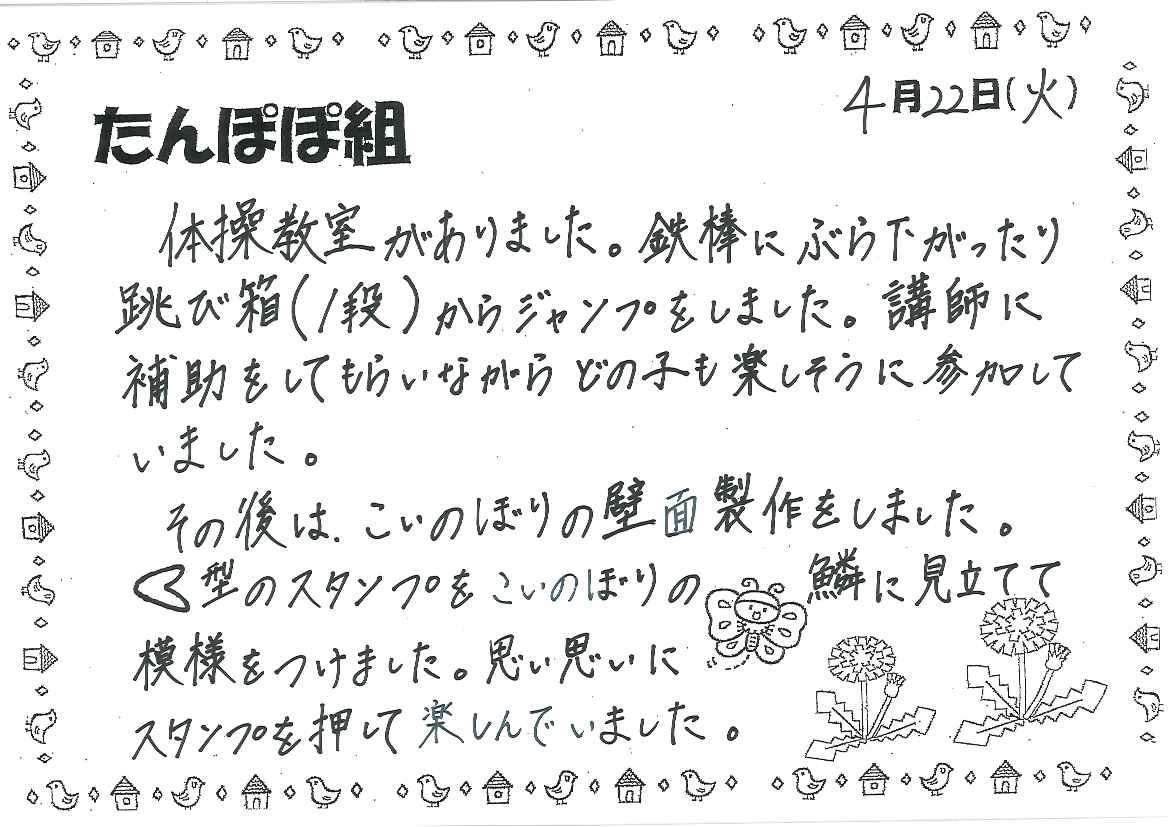 4月22日(火)
たんぽぽ組
体操教室がありました。鉄棒にぶら下がったり
跳び箱(1段)からジャンプをしました。講師に
補助をしてもらいながらどの子も楽しそうに参加して
いました。
その後は、こいのぼりの壁面製作をしました。
型のスタンプをこいのぼりの鱗に見立てて
模様をつけました。思い思いに
スタンプを押して楽しんでいました。